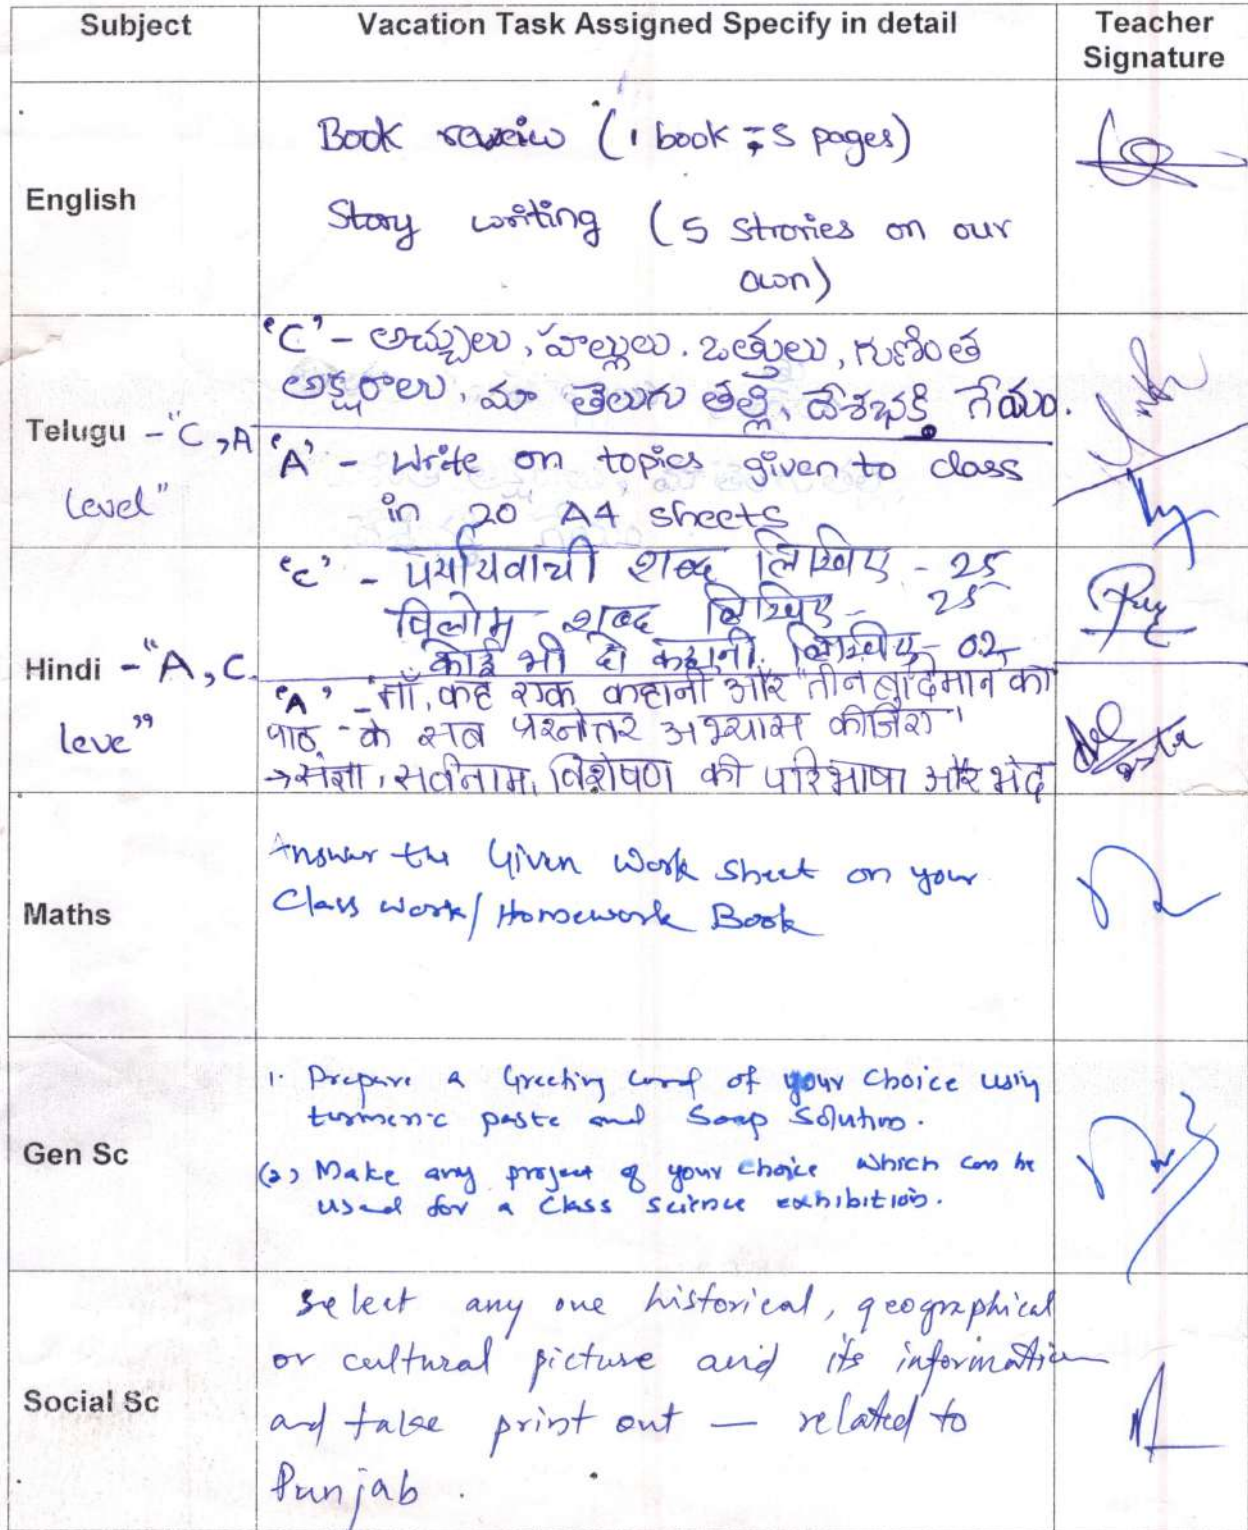 Subject
Vacation Task Assigned Specify in detail
Teacher
Signature
English
Book reveiw (1 book = 5 pages)
Story writing (5 strories on our
own)
Telugu - "C, A
level"
'C' - అచ్చులు, హల్లులు. ఒత్తులు, గుణింత
అక్షరాలు, మా తెలుగు తల్లి, దేశభక్తి గేయం.
'A' - Write on topics given to class
in 20 A4 sheets
Hindi - "A, C
leve"
'c' - पर्यायवाची शब्द लिखिए - 25
विलोम शब्द लिखिए - 25
कोई भी दो कहानी लिखिए - 02
'A' - माँ, कह एक कहानी और "तीन बुद्धिमान को
पाठ - के सब प्रश्नोतर अभ्यास कीजिए"
→ संज्ञा, सर्वनाम, विशेषण की परिभाषा और भेद
Maths
Answer the Given Work sheet on your
Class work/Homework Book
Gen Sc
1. Prepare a Greeting card of your choice using
turmeric paste and Soap Solution.
(2) Make any project of your choice which can be
used for a Class science exhibition.
Social Sc
Select any one historical, geographical
or cultural picture and its information
and take print out — related to
Punjab.